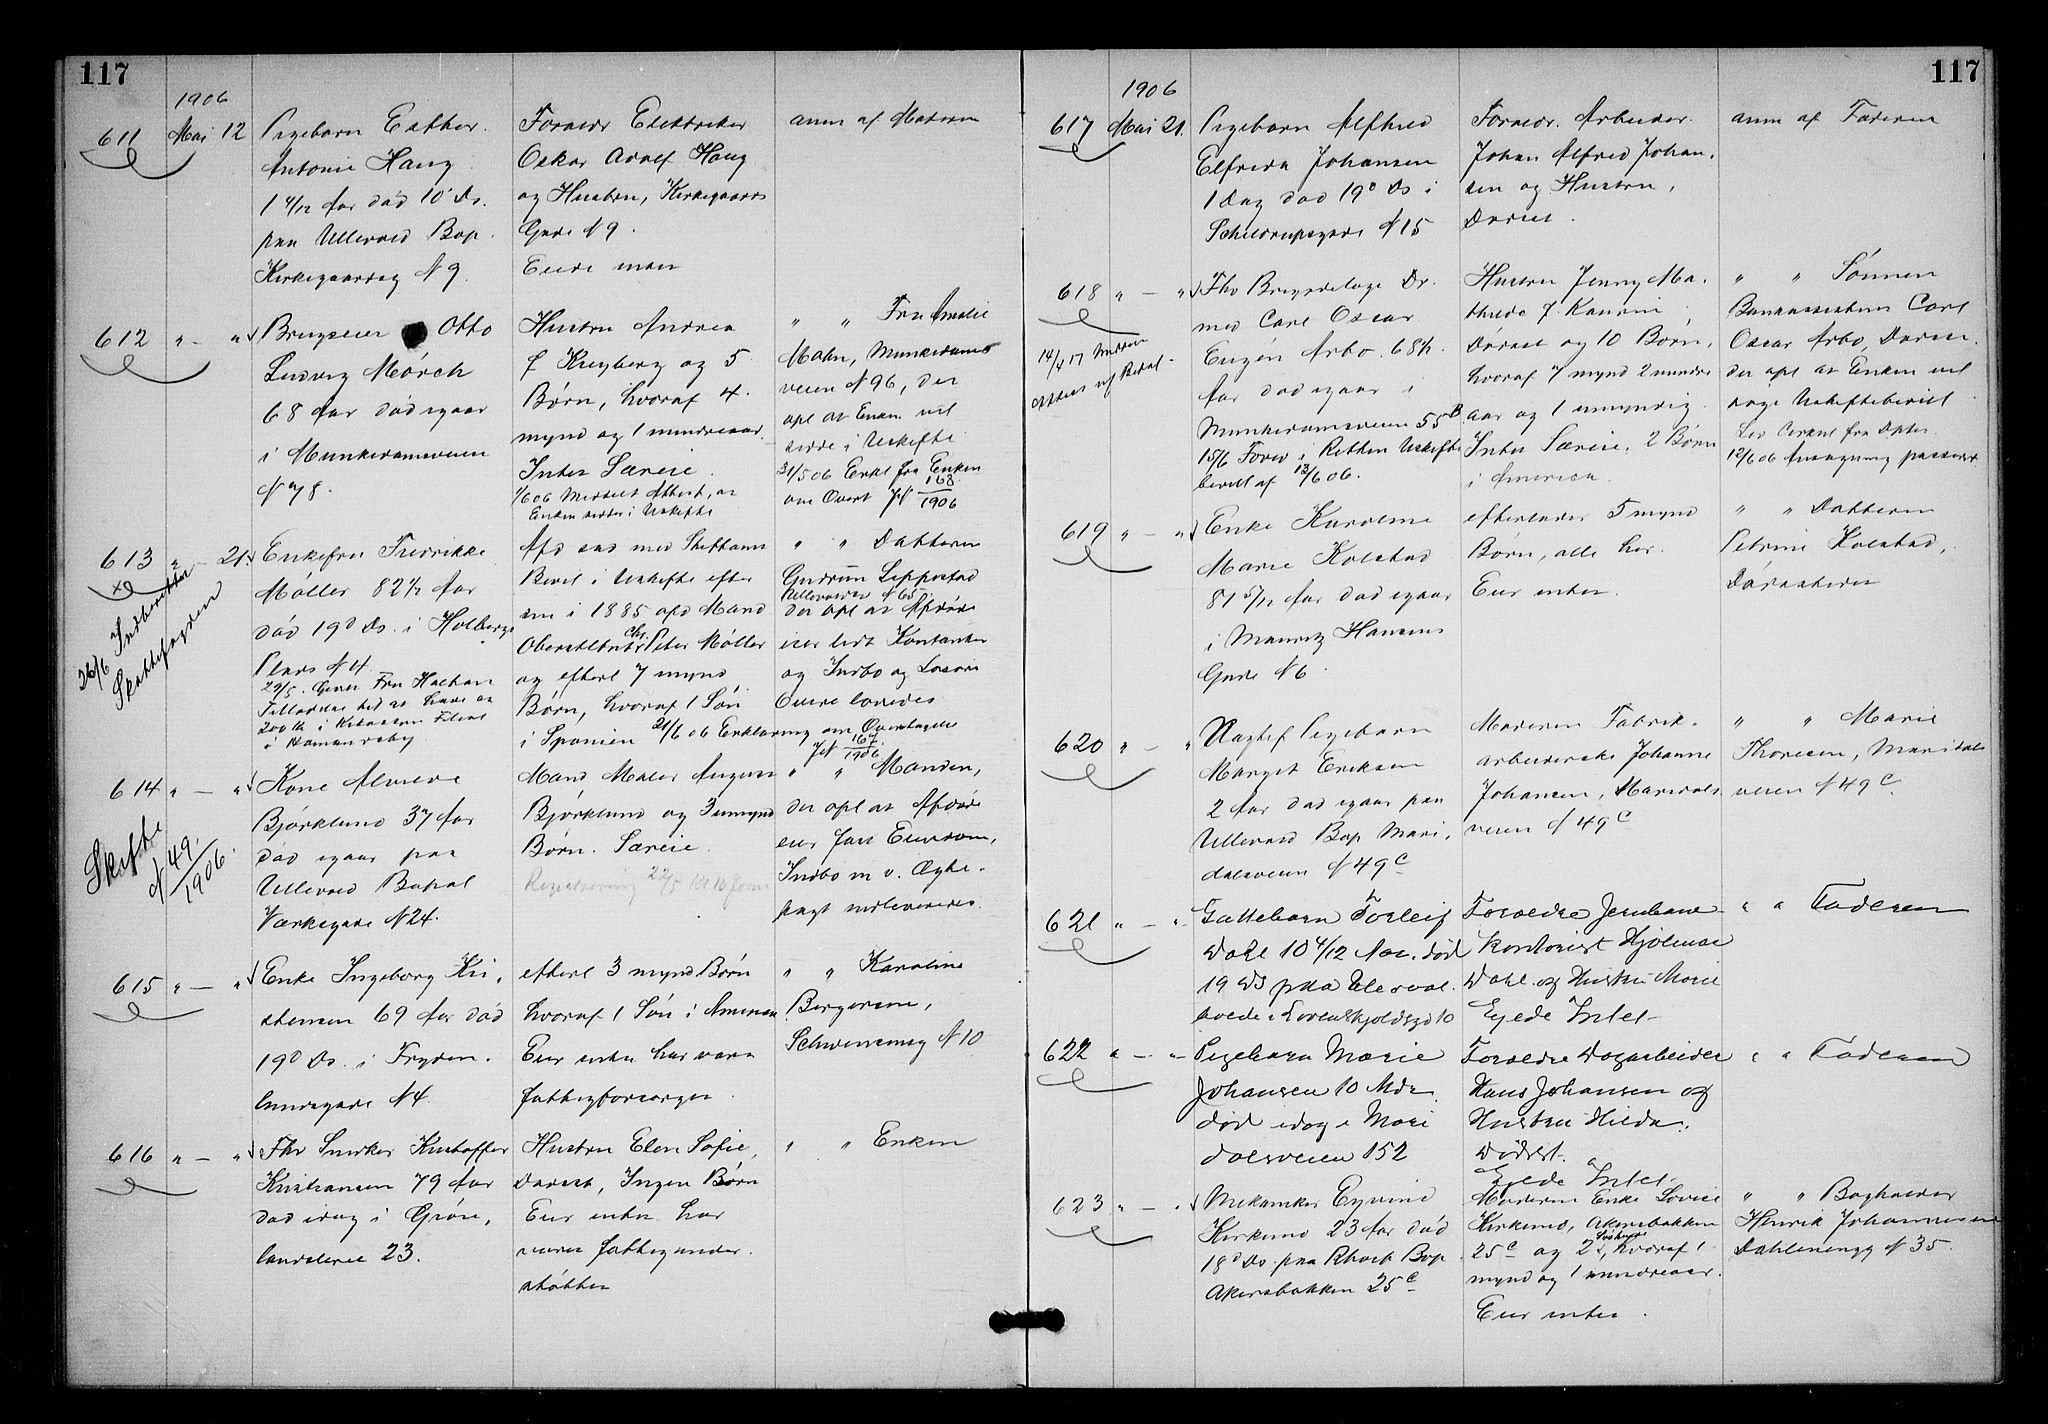 117
1906
611 Mai 12
Pigebarn Esther
Antonie Haug
1 4/12 Aar død 10 Ds.
paa Ullevaal Bop.
Kirkegaardsg N 9.
Forældr Elektriker
Oskar Adolf Haug
og Hustru, Kirkegaards
Gade N 9.
Eiede inten
anm af Moderen
612 " — "
Brugseier Otto
Ludvig Mørch
68 Aar død igaar
i Munkedamsveien
N 98.
Hustru Andrea
f Krygberg og 5
Børn, hvoraf 4
mynd og 1 mindreaar.
Inten Særeie.
1/6 06 Meddelt Attest, at
Enken sidder i Uskifte
" " Fru Amalie
Mohn, Munkedams
veien N 96, der
opl at Enken vil
sidde i Uskifte
31/5 06 Erkl fra Enken
om Overt Jf 168/1906
613 " — 21.
26/6 Indberettet
Skattefogden
Enkefru Fredrikke
Møller 82 1/2 Aar
død 19d Ds. i Holbergs
Plads N 4.
29/5. Gives Fru
Tilladelse til at hæve
200 Kr i
i Homansby
Afd sad med Skiftamn
Bevil i Uskifte efter
sin i 1885 afd Mand
Oberstltnt Chr. Peter Møller
og efterl 7 mynd
Børn, hvoraf 1 Søn
i Spanien 21/6 06 Erklæring om Overtagelse
Jf 167/1906
" " Datteren
Gudrun Leppestad
Ullevaalsv N 65
der opl at Afdøde
eier lidt Kontanter
og Indbo og Løsøre
Overe loredes
614 " — "
Skifte
N 49/1906.
Kone Alvilde
Bjørklund 37 Aar
død igaar paa
Ullevaal Bopæl
Værksgade N 24.
Mand Maler August
Bjørklund og 3 umynd
Børn. Særeie.
Registrering 22/5 Kl 10 Form
" " Manden,
der opl at Afdøde
eier fast Eiendom,
Indbo m v. Ægte-
pagt indleveredes
615 " — "
Enke Ingeborg Kri-
stensen 69 Aar død
19d Ds. i Fryden-
lundsgade N 4
efterl 3 mynd Børn
hvoraf 1 Søn i Amerika
Eier inten har været
fattigforsørget
" " Karoline
Børgersen,
Schwensensg N 10
616 " — "
Fhv Snedker Kristoffer
Kristiansen 79 Aar
død idag i Grøn-
landsleret 23.
Hustru Elen Sofie,
Dørest, Ingen Børn
Eier inten har
været fattigunder-
støttet
" " Enken
117
1906
617 Mai 21.
Pigebarn Alfhild
Elfrida Johansen
1 Dag død 19d Ds i
Schildrupsgade N 15
Forældr. Arbeider
Johan Alfred Johan-
sen og Hustru,
Dørest.
anm af Faderen
618 " — "
14/4 17
Attest
Fhv Brigadelæge Dr.
med Carl Oscar
Eugén Arbo 68 1/2
Aar død igaar i
Munkedamsveien 55B
15/6 Forev i Retten Uskifte
bevill af 13/6 06.
Hustru Jenny Ma-
thilde f Kaurin
Dørest og 10 Børn,
hvoraf 7 mynd 2 mindre
aar og 1 umyndig
Inten Særeie. 2 Børn
i Amerika.
" " Sønnen
Bankassistent Carl
Oscar Arbo, Dørest.
der opl at Enken vil
søge Uskiftebevill
12/6 06 Ansøgning passeret
619 " — "
Enke Karoline
Marie Kolstad
81 5/12 Aar død igaar
i Mauritz Hansens
Gade N 6.
efterlader 5 mynd
Børn, alle her.
Eier inten.
" " Datteren
Petrine Kolstad,
Dørestedes
620 " — "
Uægtef Pigebarn
Margit Eriksen
2 Aar død igaar paa
Ullevaal Bop Mari-
dalsveien N 49c
Moderen Fabrik-
arbeiderske Johanne
Johansen, Maridals
veien N 49c
" " Marie
Thoresen, Maridals
veien N 49c
621 " — "
Guttebarn Torleif
Dahl 10 4/12 Aar. død
19 Ds paa Ulevaal.
boede i Løvenskjoldsgd 10
Forældre Jernbane
Kontorist Hjalmar
Dahl. og Hustru Marie
Eyede Intet
" " Faderen
622 " — "
Pigebarn Marie
Johansen 10 Mdr
død idag i Mari
dalsveien 152
Forældre Dagarbeider
Hans Johansen og
Hustru Hilda.
Dødst.
Eyede Intet.
" " Faderen
623 " — "
Mekaniker Eyvind
Kirkemo 23 Aar død
18d Ds. paa Rhosp Bop
Akersbakken 25c
Moderen Enke Lovise
Kirkemo, Akersbakken
25c og 2 Sødskende, hvoraf 1
mynd og 1 mindreaar.
Eier inten.
" " Bogholder
Henrik Johannesen
Dahlenengg N 35.